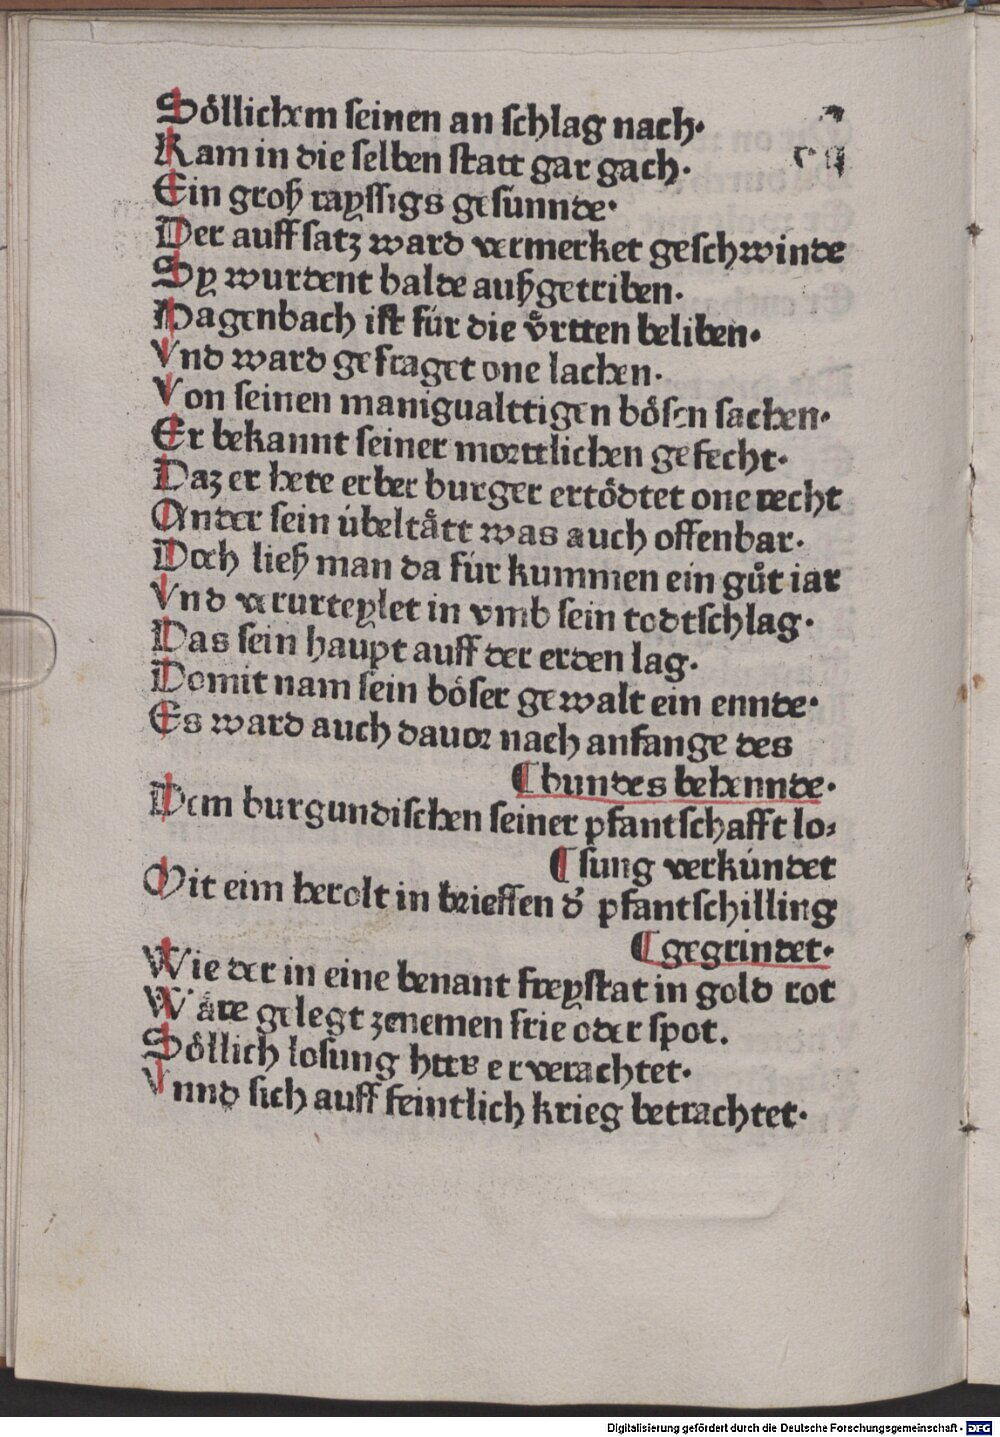 Söllichem seinen an schlag nach·
Kam in die selben statt gar gach·
Ein groß rayssigs gesünnde·
Der auff satz ward vermerket geschwinde
Sy wurdent balde außgetriben·
Hagenbach ist für die ůrtten beliben·
Vnd ward gefraget one lachen·
Von seinen manigualttigen bösen sachen·
Er bekannt seiner morttlichen gefecht·
Daz er hete erber burger ertödtet one recht
Ander sein übeltått was auch offenbar·
Doch ließ man da für kummen ein gůt iar
Vnd verurteylet in vmb sein todtschlag·
Das sein haupt auff der erden lag·
Domit nam sein böser gewalt ein ennde·
Es ward auch dauor nach anfange des
¶bundes behennde·
Dem burgundischen seiner pfantschafft lo⸗
¶sung verkündet
Mit eim herolt in brieffen d̕ pfantschilling
¶gegrindet·
Wie der in eine benant freystat in gold rot
Wåre gelegt zenemen frie oder spot.
Söllich losung hett er verachtet·
Vnnd sich auff feintlich krieg betrachtet·
Digitalisierung gefördert durch die Deutsche Forschungsgemeinschaft - DFG